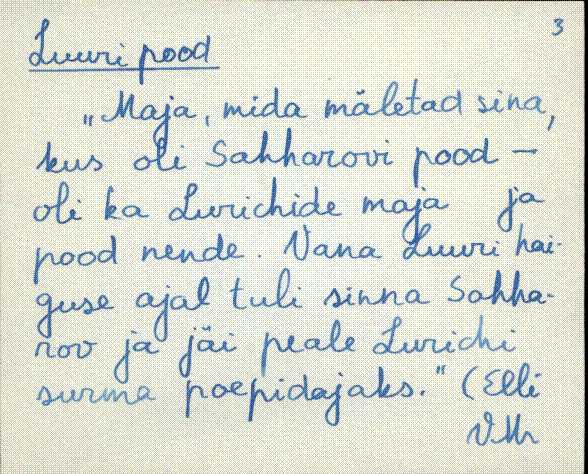 3
Luuri pood
„Maja, mida mäletad sina,
kus oli Sahharovi pood –
oli ka Lurichide maja ja
pood nende. Vana Luuri hai-
guse ajal tuli sinna Sahha-
rov ja jäi peale Lurichi
surma poepidajaks." (Elli